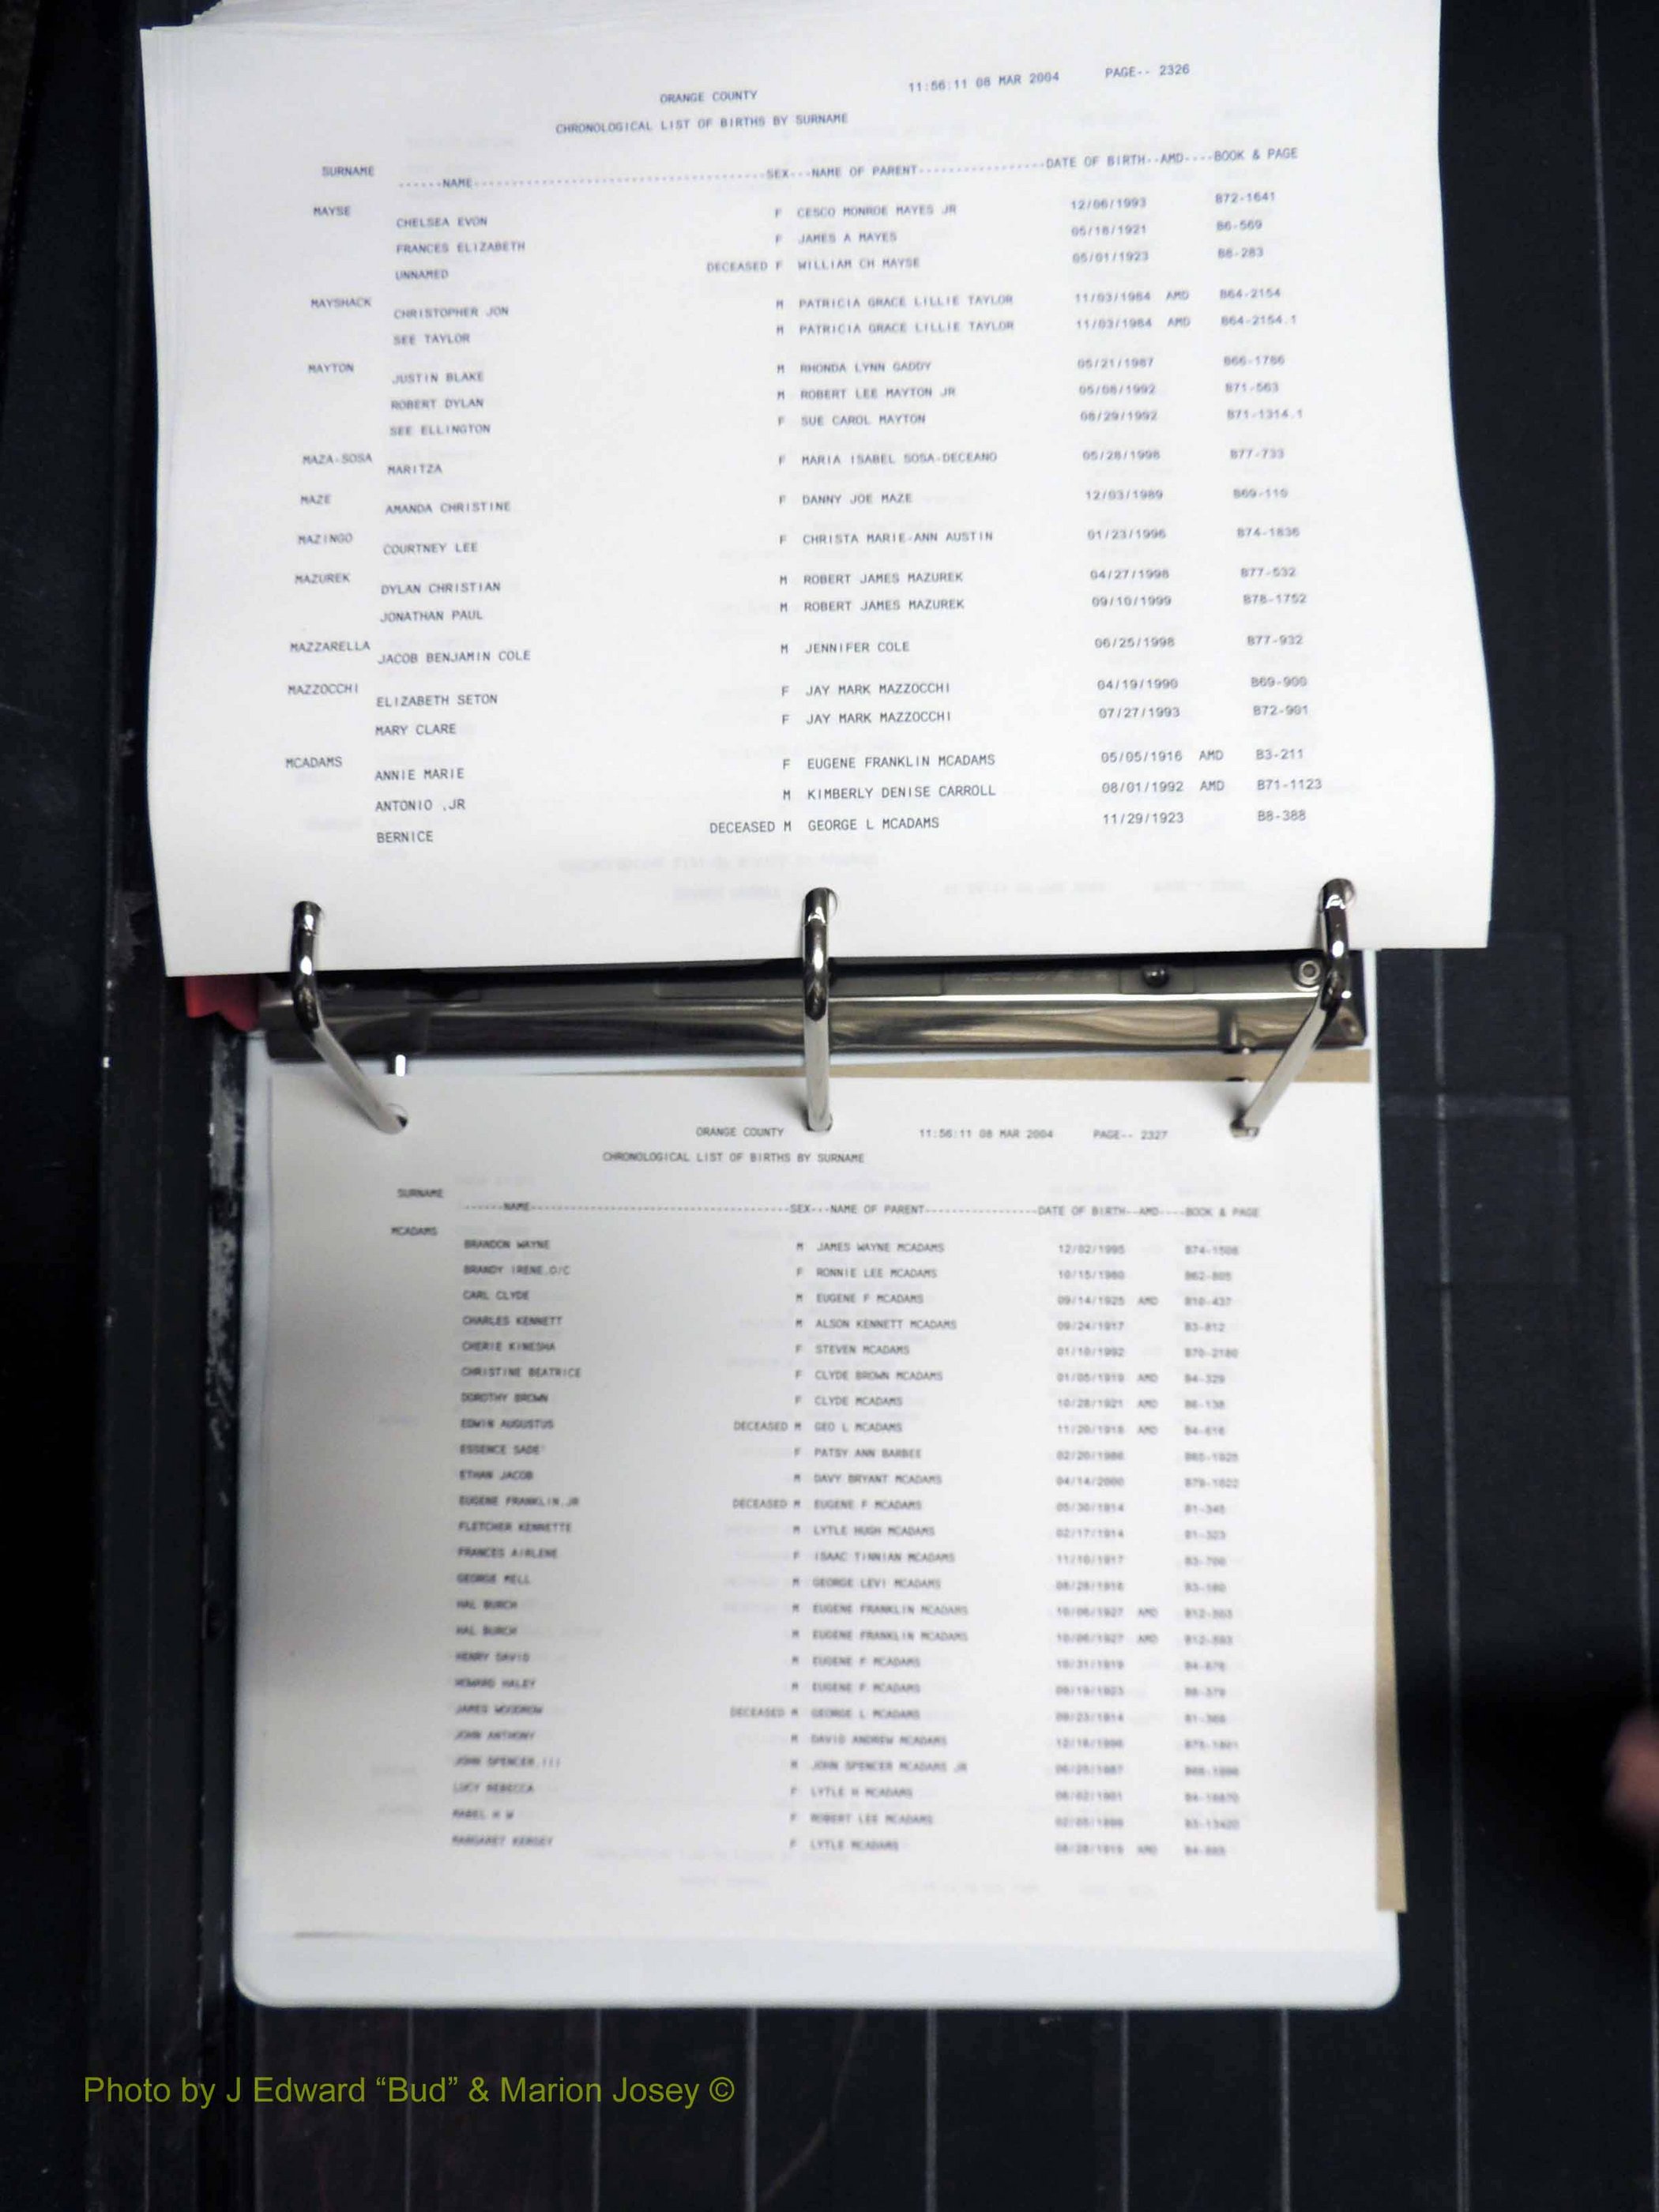 ORANGE COUNTY 11:56:11 08 MAR 2004 PAGE-- 2326
CHRONOLOGICAL LIST OF BIRTHS BY SURNAME
SURNAME ------NAME---SEX---NAME OF PARENT---DATE OF BIRTH--AMD----BOOK & PAGE
MAYSE
CHELSEA EVON F CESCO MONROE MAYES JR 12/06/1993 B72-1641
FRANCES ELIZABETH F JAMES A MAYES 05/18/1921 B6-569
UNNAMED DECEASED F WILLIAM CH MAYSE 05/01/1923 B8-283
MAYSHACK
CHRISTOPHER JON M PATRICIA GRACE LILLIE TAYLOR 11/03/1984 AMD B64-2154
SEE TAYLOR M PATRICIA GRACE LILLIE TAYLOR 11/03/1984 AMD B64-2154.1
MAYTON
JUSTIN BLAKE M RHONDA LYNN GADDY 05/21/1987 B66-1786
ROBERT DYLAN M ROBERT LEE MAYTON JR 05/08/1992 B71-563
SEE ELLINGTON F SUE CAROL MAYTON 08/29/1992 B71-1314.1
MAZA-SOSA
MARITZA F MARIA ISABEL SOSA-DECEANO 05/28/1998 B77-733
MAZE
AMANDA CHRISTINE F DANNY JOE MAZE 12/03/1989 B69-110
MAZINGO
COURTNEY LEE F CHRISTA MARIE-ANN AUSTIN 01/23/1996 B74-1836
MAZUREK
DYLAN CHRISTIAN M ROBERT JAMES MAZUREK 04/27/1998 B77-532
JONATHAN PAUL M ROBERT JAMES MAZUREK 09/10/1999 B78-1752
MAZZARELLA
JACOB BENJAMIN COLE M JENNIFER COLE 06/25/1998 B77-932
MAZZOCCHI
ELIZABETH SETON F JAY MARK MAZZOCCHI 04/19/1990 B69-900
MARY CLARE F JAY MARK MAZZOCCHI 07/27/1993 B72-901
MCADAMS
ANNIE MARIE F EUGENE FRANKLIN MCADAMS 05/05/1916 AMD B3-211
ANTONIO ,JR M KIMBERLY DENISE CARROLL 08/01/1992 AMD B71-1123
BERNICE DECEASED M GEORGE L MCADAMS 11/29/1923 B8-388
ORANGE COUNTY 11:56:11 08 MAR 2004 PAGE-- 2327
CHRONOLOGICAL LIST OF BIRTHS BY SURNAME
SURNAME ------NAME---SEX---NAME OF PARENT---DATE OF BIRTH--AMD----BOOK & PAGE
MCADAMS
BRANDON WAYNE M JAMES WAYNE MCADAMS 12/02/1995 B74-1506
BRANDY IRENE,O/C F RONNIE LEE MCADAMS 10/15/1980 B62-805
CARL CLYDE M EUGENE F MCADAMS 09/14/1925 AMD B10-437
CHARLES KENNETT M ALSON KENNETT MCADAMS 09/24/1917 B3-812
CHERIE KINESHA F STEVEN MCADAMS 01/10/1992 B70-2180
CHRISTINE BEATRICE F CLYDE BROWN MCADAMS 01/05/1919 AMD B4-329
DOROTHY BROWN F CLYDE MCADAMS 10/28/1921 AMD B6-138
EDWIN AUGUSTUS DECEASED M GEO L MCADAMS 11/20/1918 AMD B4-616
ESSENCE SADE F PATSY ANN BARBEE 02/20/1986 B65-1925
ETHAN JACOB M DAVY BRYANT MCADAMS 04/14/2000 B79-1022
EUGENE FRANKLIN,JR DECEASED M EUGENE F MCADAMS 05/30/1914 B1-345
FLETCHER KENNETTE M LYTLE HUGH MCADAMS 02/17/1914 B1-323
FRANCES AIRLENE F ISAAC TINNIAN MCADAMS 11/10/1917
GEORGE MELL M GEORGE LEVI MCADAMS
HAL BURCH M EUGENE FRANKLIN MCADAMS 10/06/1927 AMD
HAL BURCH M EUGENE FRANKLIN MCADAMS 10/06/1927 AMD
HENRY DAVID M EUGENE F MCADAMS 10/31/1919
HOWARD HALEY M EUGENE F MCADAMS
JAMES WOODROW DECEASED M GEORGE L MCADAMS
JOHN ANTHONY M DAVID ANDREW MCADAMS
JOHN SPENCER,III M JOHN SPENCER MCADAMS JR
LUCY REBECCA F LYTLE H MCADAMS
MABEL H W F ROBERT LEE MCADAMS
MARGARET KERSEY F LYTLE MCADAMS AMD
Photo by J Edward “Bud” & Marion Josey ©